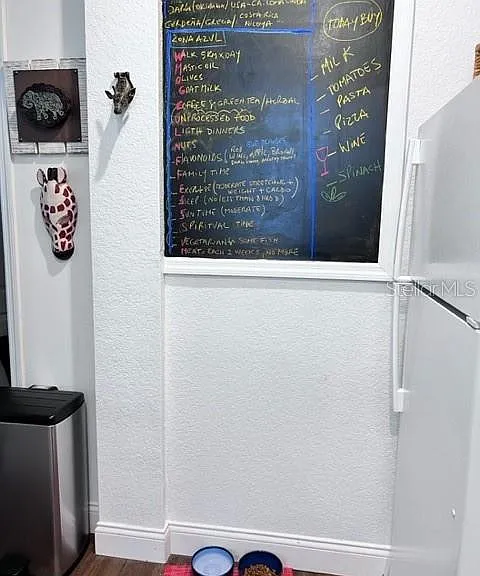 JAPAN/OKINAWA/USA-CA. LOMA LINDA
CERDEÑA/GRECIA/ COSTA RICA
NICOYA ...
ZONA AZUL
WALK 5KMXDAY
MASTIC OIL
OLIVES
GOAT MILK
COFFEE & GREEN TEA/HERBAL
UNPROCESSED FOOD
LIGTH DINNERS
NUTS
FLAVONOIDS (RED
WINE, APPLE,
FAMILY TIME
EXERCISE (MODERATE STRETCHING +
WEIGHT + CARDO)
SLEEP (NO LESS THAN 8 HRS D)
SUN TIME (MODERATE)
SPIRITUAL TIME
VEGETARIAN & SOME FISH
MEAT: EACH 2 WEEKS, NO MORE
TODAY BUY
- MILK
- TOMATOES
PASTA
- PIZZA
- WINE
SPINACH
StellarMLS